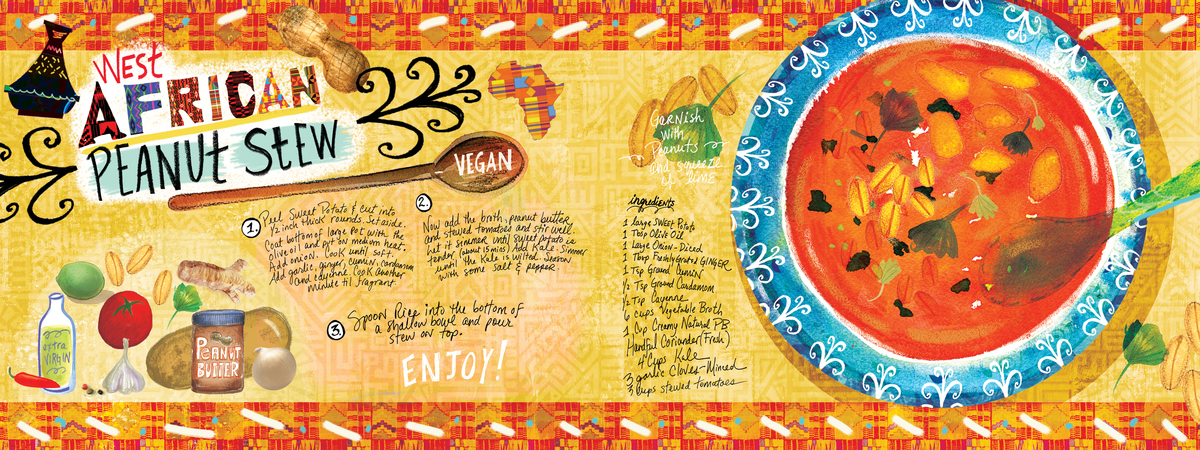 WEST
AFRICAN
PEANUt StEW
VEGAN
1.
Peel Sweet Potato & cut into
1/2 inch thick rounds. Set aside.
Coat bottom of large pot with the
olive oil and put on medium heat.
Add onion. Cook until soft.
Add garlic, ginger, cumin, cardamom
and cayenne. Cook another
minute til fragrant.
2.
Now add the broth, peanut butter,
and stewed tomatoes and stir well.
Let it simmer until sweet potato is
tender (about 15 mins) Add Kale. Simmer
until the Kale is wilted. Season
with some salt & pepper.
3.
Spoon Rice into the bottom of
a shallow bowl and pour
stew on top.
ENJOY!
extra
VIRGIN
PEANUt
BUTTER
Garnish
with
Peanuts
and squeeze
of lime
ingredients
1 large SWEEt Potato
1 Tbsp Olive Oil
1 Large Onion-Diced
1 Tbsp Freshly Grated GINGER
1 Tsp Ground Cumin
1/2 Tsp Ground Cardamom
1/2 Tsp Cayenne
6 cups Vegetable Broth
1 Cup Creamy Natural PB
Handful Coriander (Fresh)
4 Cups Kale
3 garlic Cloves-Minced
3 cups stewed tomatoes